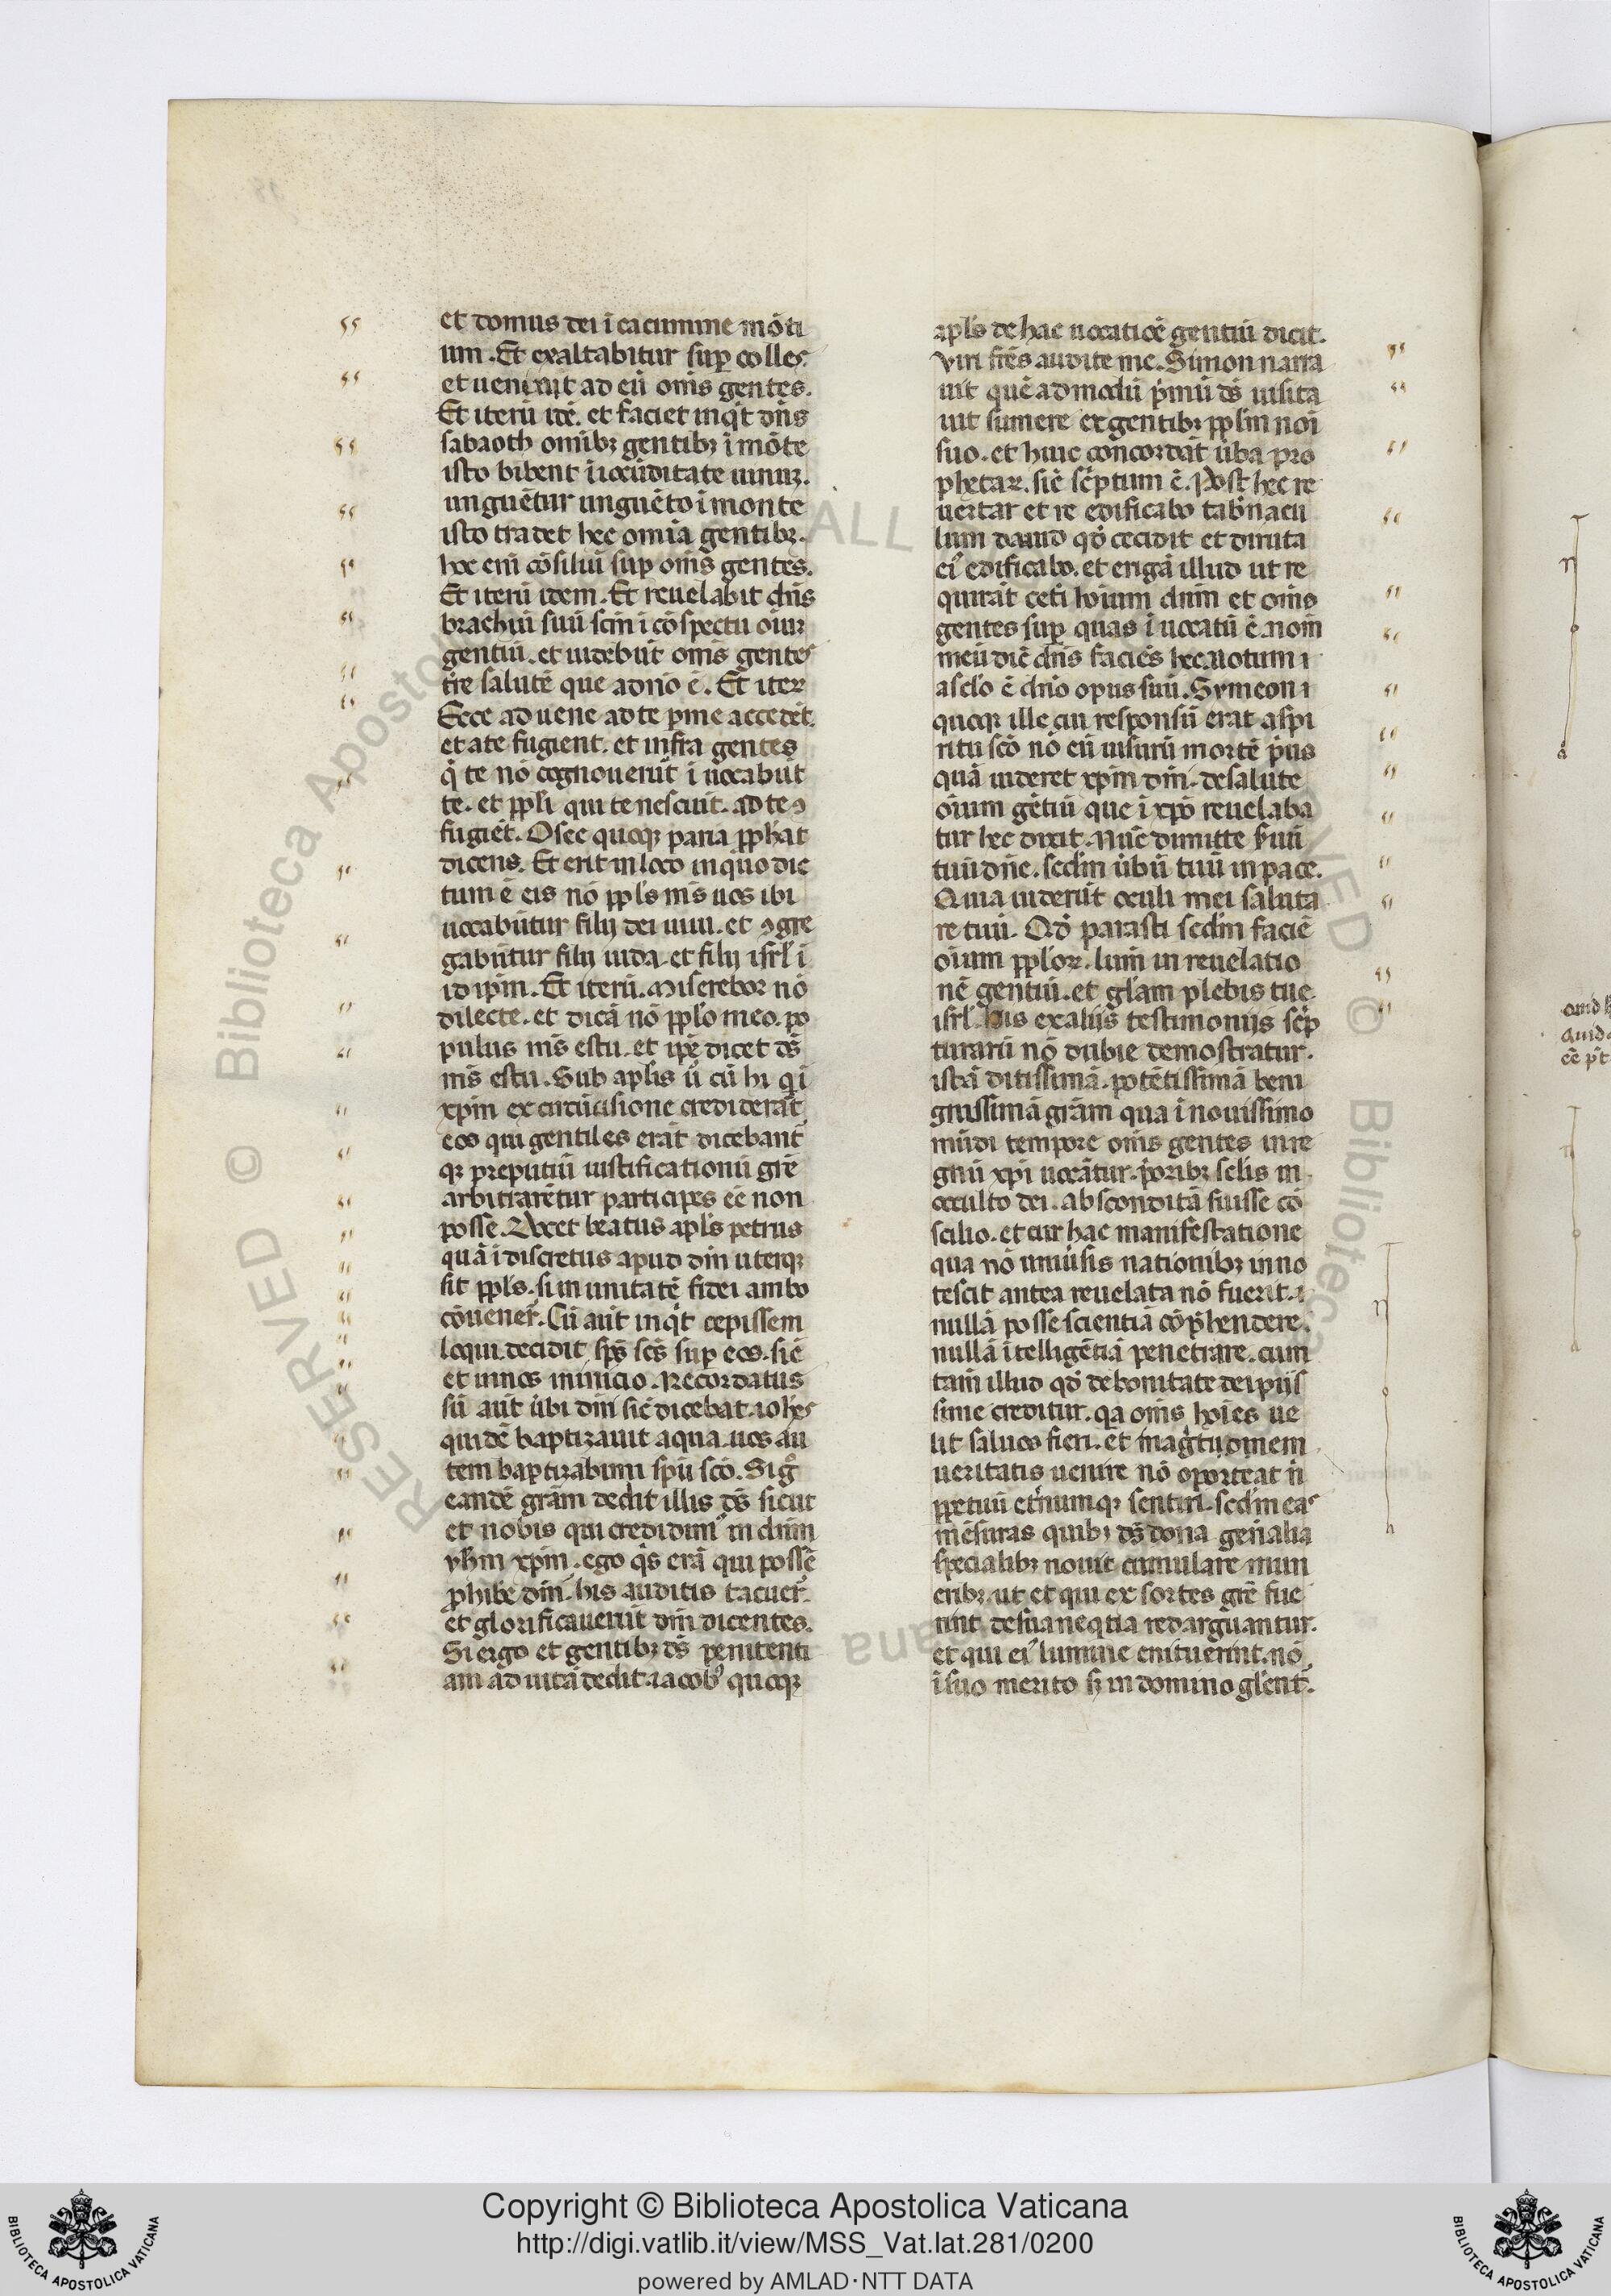 et domus dei ĩ cacumine mõti
um. Et exaltabitur suꝑ colles.
et uenient ad eũ om̃s gentes.
Et iterũ idẽ. et faciet inqͥt dñs
sabaoth omĩbꝫ gentibꝫ ĩ mõte
isto bibent ĩ iocũditate uinũ.
unguẽtur unguẽto ĩ monte
isto tradet hec om̃ia gentibꝫ.
hoc eni cõsiliũ suꝑ om̃s gentes.
Et iterũ idem. Et reuelabit dñs
brachiũ suũ scm̃ ĩ cõspectu oĩuꝫ
gentiũ. et uidebũt om̃s gentes
tr̃e salutẽ que a dño ẽ. Et iteꝝ
Ecce aduene ad te ꝑ me accedẽt.
et a te fugient. et infra gentes
q̃ te nõ cognouerũt ĩuocabũt
te. et ppl̃i qui te nesciũt. ad te ꝯ
fugiẽt. Osee quoqꝫ paria ꝓphat
dicens. Et erit in loco in quo dic
tum ẽ eis nõ ppl̃s m̃s uos ibi
uocabũtur filij dei uiui. et ꝯgre
gabũtur filij iuda et filij isrl̃ ĩ
id ip̃m. Et iterũ. Miserebor nõ
dilecte. et dicã nõ ppl̃o meo. po
pulus m̃s es tu. et ip̃e dicet ds̃
m̃s es tu. Sub apl̃is ũ cũ hi qͥ
xp̃m ex circũcisione crediderãt
eos qui gentiles erãt dicebant
qꝫ preputiũ iustificationũ gr̃e
arbitrarẽtur participes eẽ non
posse. Docet beatus apl̃s petrus
quã ĩdiscretus apud dm̃ uterqꝫ
sit ppl̃s. si in unitatẽ fidei ambo
cõuener̃. Cũ aũt inqͥt cepissem
loqui. decidit sp̃s sc̃s suꝑ eos. sic̃
et in nos in inicio. Recordatus
sũ aũt ũbi dñi sic̃ dicebat. iohes
quidẽ baptizauit aqua. uos au
tem baptizabimi spũ scõ. Si gͦ
eandẽ gr̃am dedit illis ds̃ sicut
et nobis qui credidimꝰ in dñm
yhm̃ xp̃m. ego qͥs erã qui possẽ
ꝓhibẽ dm̃. his auditis tacuer̃.
et glorificauerũt dm̃ dicentes.
Si ergo et gentibꝫ ds̃ penitenti
am ad uitã dedit. iacobꝰ quoqꝫ
apl̃s de hac uocatiõe gentiũ dicit.
Viri fr̃es audite me. Simon narra
uit quẽadmodũ pͥmũ ds̃ uisita
uit sumere ex gentibꝫ ppl̃m noĩ
suo. et huic concordãt ũba pro
phetaꝝ. sic̃ sc̃ptum ẽ. Post hec re
uertar et re edificabo tab̃nacu
lum dauid qđ cecidit et diruta
eiꝰ edificabo. et erigã illud ut re
quirãt cet̃i hoĩum dñm et om̃s
gentes suꝑ quas ĩuocatũ ẽ nom̃
meũ dic̃ dñs faciẽs hec. notum
a sc̃lo ẽ dño opus suũ. Symeon
quoqꝫ ille cui responsũ erat a spi
ritu scõ nõ eũ uisurũ mortẽ pͥus
quã uideret xp̃m dm̃. de salute
oĩum gẽtiũ que ĩ xp̃o reuelaba
tur hec dixit. Nũc dimitte ẜuũ
tuũ dñe. scđm ũbũ tuũ in pace.
Quia uiderũt oculi mei saluta
re tuũ. Qđ parasti scđm faciẽ
oĩum ppl̃oꝝ. lum̃ in reuelatio
nẽ gentiũ. et gl̃am plebis tue
isrl̃. His ex alijs testimonijs scp̃
turarũ nõ dubie demostratur.
istã ditissimã. potẽtissimã beni
gnissimã gr̃am qua ĩ nouissimo
mũdi tempore om̃s gentes in re
gnũ xp̃i uocãtur. pͥoribꝫ sc̃lis in
occulto dei. absconditã fuisse cõ
scilio. et cur hac manifestatione
qua nõ uniũsis nationibꝫ inno
tescit antea reuelata nõ fuerit.
nullã posse scientiã cõp̃hendere.
nullã ĩtelligẽtiã penetrare. cum
tam̃ illud qđ de bonitate dei pijs
sime creditur. qa om̃s hoĩes ue
lit saluos fieri. et magͥtudinem
ueritatis uenire nõ oporteat ñ
ꝑpetuũ et̃numqꝫ sentiri. scđm eas
mẽsuras quibꝫ ds̃ dona gen̾alia
specialibꝫ nouit cumulare mun
eribꝫ. ut et qui exsortes gr̃e fue
rint de sua neqͥtia redarguantur.
et qui eiꝰ lumine enituerint. nõ
ĩ suo merito sꝫ in domino gl̃ent̃.
Copyright © Biblioteca Apostolica Vaticana
http://digi.vatlib.it/view/MSS_Vat.lat.281/0200
powered by AMLAD·NTT DATA